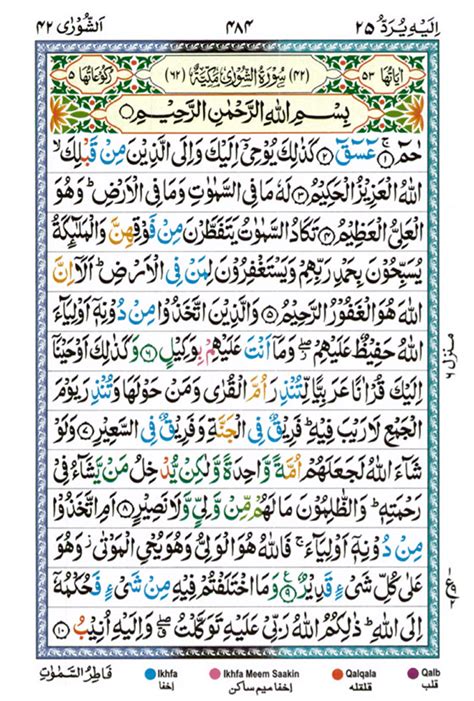 اَلشُّوۡرٰی ۴۲ ۴۸۴ اِلَیۡهِ یُرَدُّ ۲۵
اٰیَاتُهَا ۵۳ (۴۲) سُوۡرَةُ الشُّوۡرٰی مَکِّیَّةٌ (۶۲) رُکُوۡعَاتُهَا ۵
بِسۡمِ اللّٰهِ الرَّحۡمٰنِ الرَّحِیۡمِ
حٰمٓ ۚ﴿۱﴾ عٓسٓقٓ ﴿۲﴾ کَذٰلِکَ یُوۡحِیۡۤ اِلَیۡکَ وَ اِلَی الَّذِیۡنَ مِنۡ قَبۡلِکَ ۙ
اللّٰهُ الۡعَزِیۡزُ الۡحَکِیۡمُ ﴿۳﴾ لَهٗ مَا فِی السَّمٰوٰتِ وَ مَا فِی الۡاَرۡضِ ؕ وَ هُوَ
الۡعَلِیُّ الۡعَظِیۡمُ ﴿۴﴾ تَکَادُ السَّمٰوٰتُ یَتَفَطَّرۡنَ مِنۡ فَوۡقِهِنَّ وَ الۡمَلٰٓئِکَةُ
یُسَبِّحُوۡنَ بِحَمۡدِ رَبِّهِمۡ وَ یَسۡتَغۡفِرُوۡنَ لِمَنۡ فِی الۡاَرۡضِ ؕ اَلَاۤ اِنَّ
اللّٰهَ هُوَ الۡغَفُوۡرُ الرَّحِیۡمُ ﴿۵﴾ وَ الَّذِیۡنَ اتَّخَذُوۡا مِنۡ دُوۡنِهٖۤ اَوۡلِیَآءَ
اللّٰهُ حَفِیۡظٌ عَلَیۡهِمۡ ۖ وَ مَاۤ اَنۡتَ عَلَیۡهِمۡ بِوَکِیۡلٍ ﴿۶﴾ وَ کَذٰلِکَ اَوۡحَیۡنَاۤ
اِلَیۡکَ قُرۡاٰنًا عَرَبِیًّا لِّتُنۡذِرَ اُمَّ الۡقُرٰی وَ مَنۡ حَوۡلَهَا وَ تُنۡذِرَ یَوۡمَ
الۡجَمۡعِ لَا رَیۡبَ فِیۡهِ ؕ فَرِیۡقٌ فِی الۡجَنَّةِ وَ فَرِیۡقٌ فِی السَّعِیۡرِ ﴿۷﴾ وَ لَوۡ
شَآءَ اللّٰهُ لَجَعَلَهُمۡ اُمَّةً وَّاحِدَةً وَّ لٰکِنۡ یُّدۡخِلُ مَنۡ یَّشَآءُ فِیۡ
رَحۡمَتِهٖ ؕ وَ الظّٰلِمُوۡنَ مَا لَهُمۡ مِّنۡ وَّلِیٍّ وَّ لَا نَصِیۡرٍ ﴿۸﴾ اَمِ اتَّخَذُوۡا
مِنۡ دُوۡنِهٖۤ اَوۡلِیَآءَ ۚ فَاللّٰهُ هُوَ الۡوَلِیُّ وَ هُوَ یُحۡیِ الۡمَوۡتٰی ۫ وَ هُوَ
عَلٰی کُلِّ شَیۡءٍ قَدِیۡرٌ ﴿۹﴾ وَ مَا اخۡتَلَفۡتُمۡ فِیۡهِ مِنۡ شَیۡءٍ فَحُکۡمُهٗۤ
اِلَی اللّٰهِ ؕ ذٰلِکُمُ اللّٰهُ رَبِّیۡ عَلَیۡهِ تَوَکَّلۡتُ ۖ وَ اِلَیۡهِ اُنِیۡبُ ﴿۱۰﴾
منزل ۶
فَاطِرُ السَّمٰوٰتِ
Ikhfa Ikhfa Meem Saakin Qalqala Qalb
اخفا اخفا میم ساکن قلقله قلب